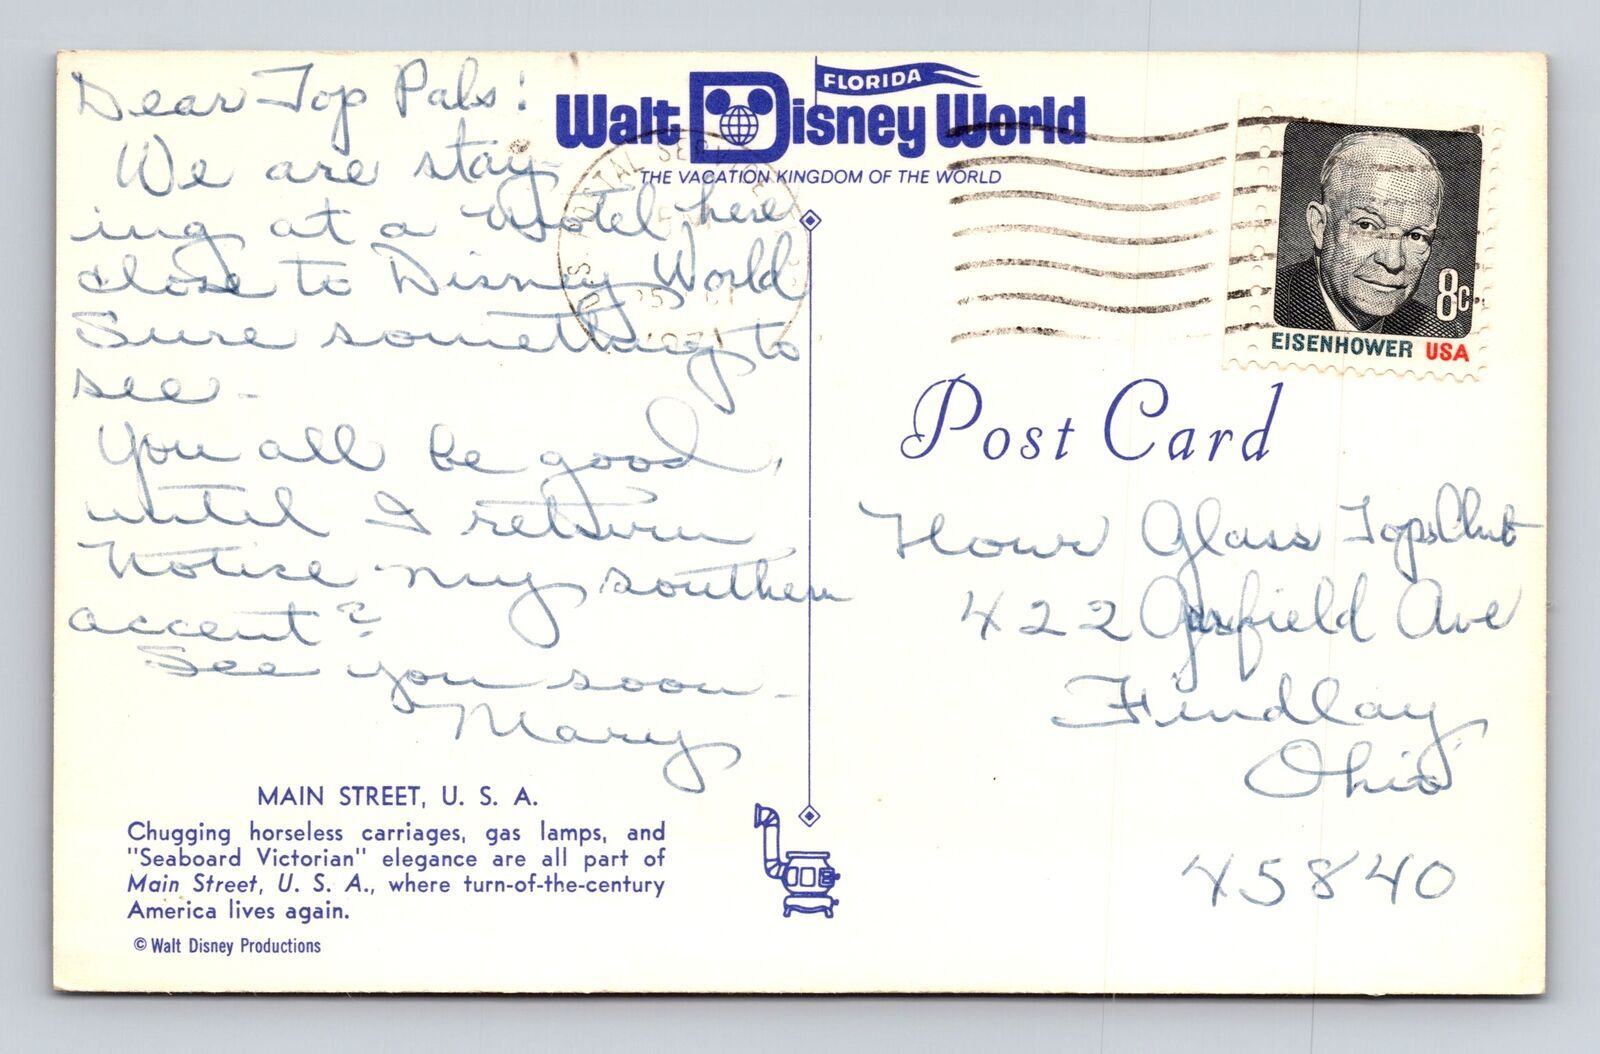 Dear Top Pals!
We are stay-
ing at a Motel here
close to Disney World
Sure something to
see -
You all be good,
until I return
Notice my southern
accent?
See you soon -
Mary
MAIN STREET, U. S. A.
Chugging horseless carriages, gas lamps, and
"Seaboard Victorian" elegance are all part of
Main Street, U. S. A., where turn-of-the-century
America lives again.
© Walt Disney Productions
FLORIDA
Walt Disney World
THE VACATION KINGDOM OF THE WORLD
POSTAL SERVICE
1971
8c
EISENHOWER USA
Post Card
Hour Glass Tops Club
422 Garfield Ave
Findlay
Ohio
45840